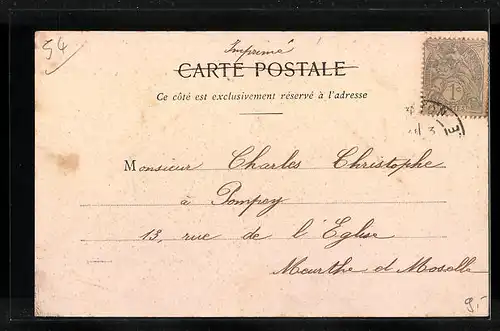 54
Imprimé
CARTE POSTALE
Ce côté est exclusivement réservé à l'adresse
1c
Monsieur Charles Christophe
à Pompey
13, rue de l'Eglise
Meurthe et Moselle
9.-